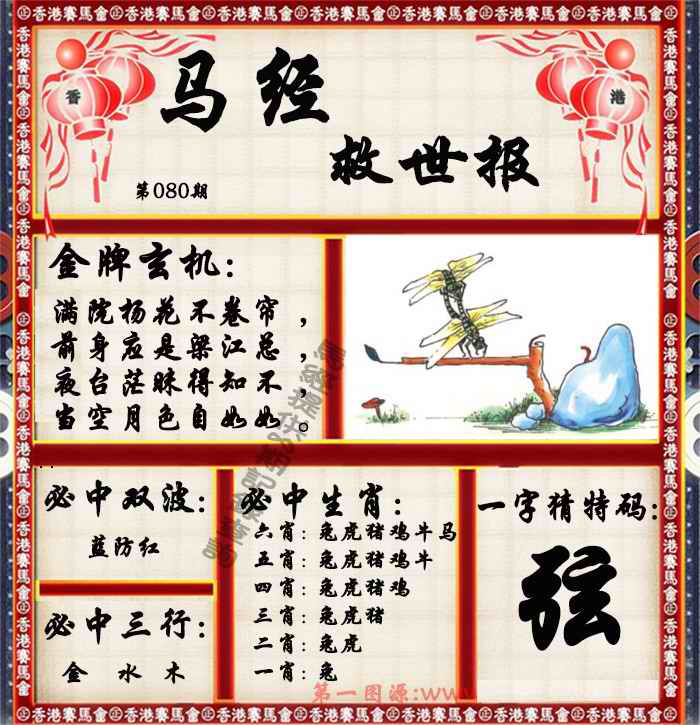 香港賽馬會㊣香港賽馬會㊣香港賽馬會㊣香港賽馬會㊣香港賽馬會
香
港
马经
救世报
第080期
金牌玄机：
满院杨花不卷帘，
前身应是梁江总，
夜台茫昧得知不，
当空月色自如如。
必中双波：
蓝防红
必中三行：
金 水 木
必中生肖：
六肖：兔虎猪鸡牛马
五肖：兔虎猪鸡牛
四肖：兔虎猪鸡
三肖：兔虎猪
二肖：兔虎
一肖：兔
一字猜特码：
弦
第一图源:www